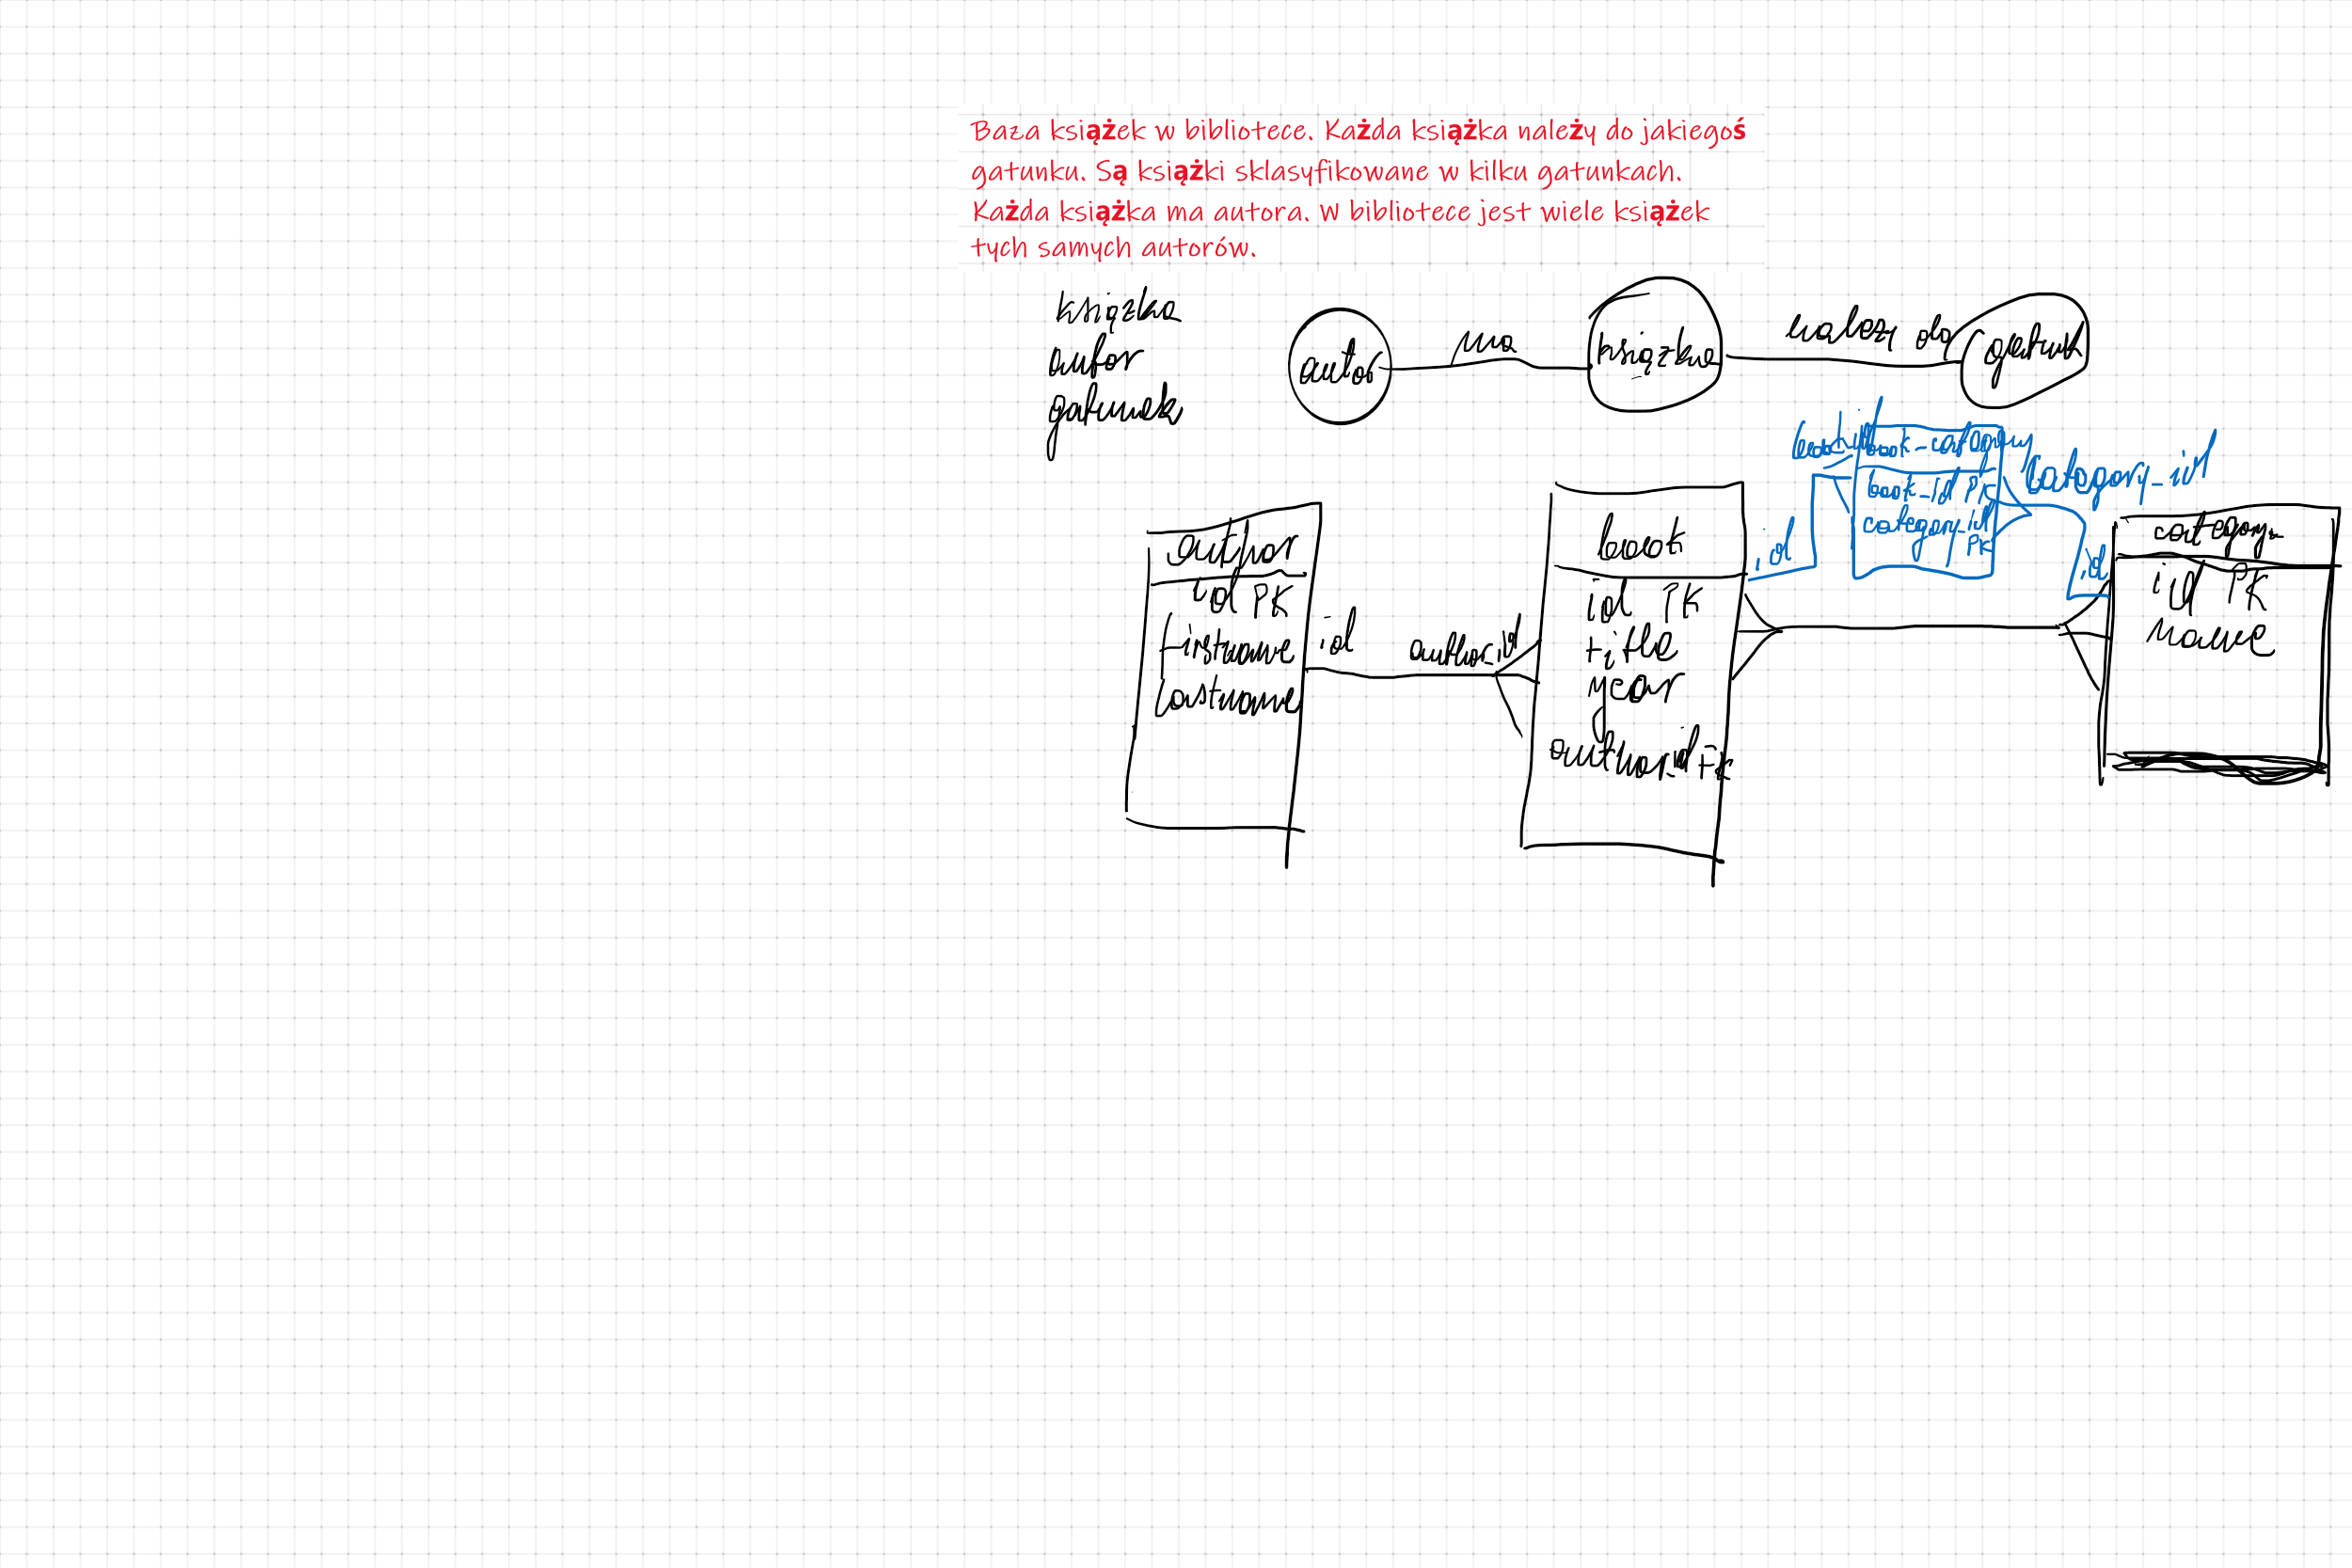 Baza książek w bibliotece. Każda książka należy do jakiegoś
gatunku. Są książki sklasyfikowane w kilku gatunkach.
Każda książka ma autora. W bibliotece jest wiele książek
tych samych autorów.
książka
autor
gatunek
autor
ma
książka
należy do
gatunk
author
id PK
firstname
lastname
id
author_id
book
id PK
title
year
author_id FK
id
book_id
book-category
book-id PK
category-id
PK
category-id
id
category
id PK
name